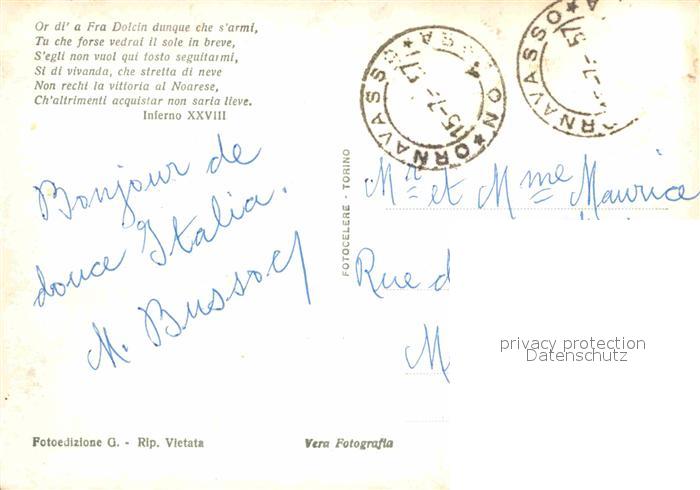 Or di' a Fra Dolcin dunque che s'armi,
Tu che forse vedrai il sole in breve,
S'egli non vuol qui tosto seguitarmi,
Si di vivanda, che stretta di neve
Non rechi la vittoria al Noarese,
Ch'altrimenti acquistar non saria lieve.
Inferno XXVIII
Bonjour de
douce Italia.
M.
Fotoedizione G. - Rip. Vietata
Vera Fotografia
FOTOCELERE - TORINO
ORNAVASSO
ORNAVASSO
Mr et Mme Maurice
Rue d
M
privacy protection
Datenschutz